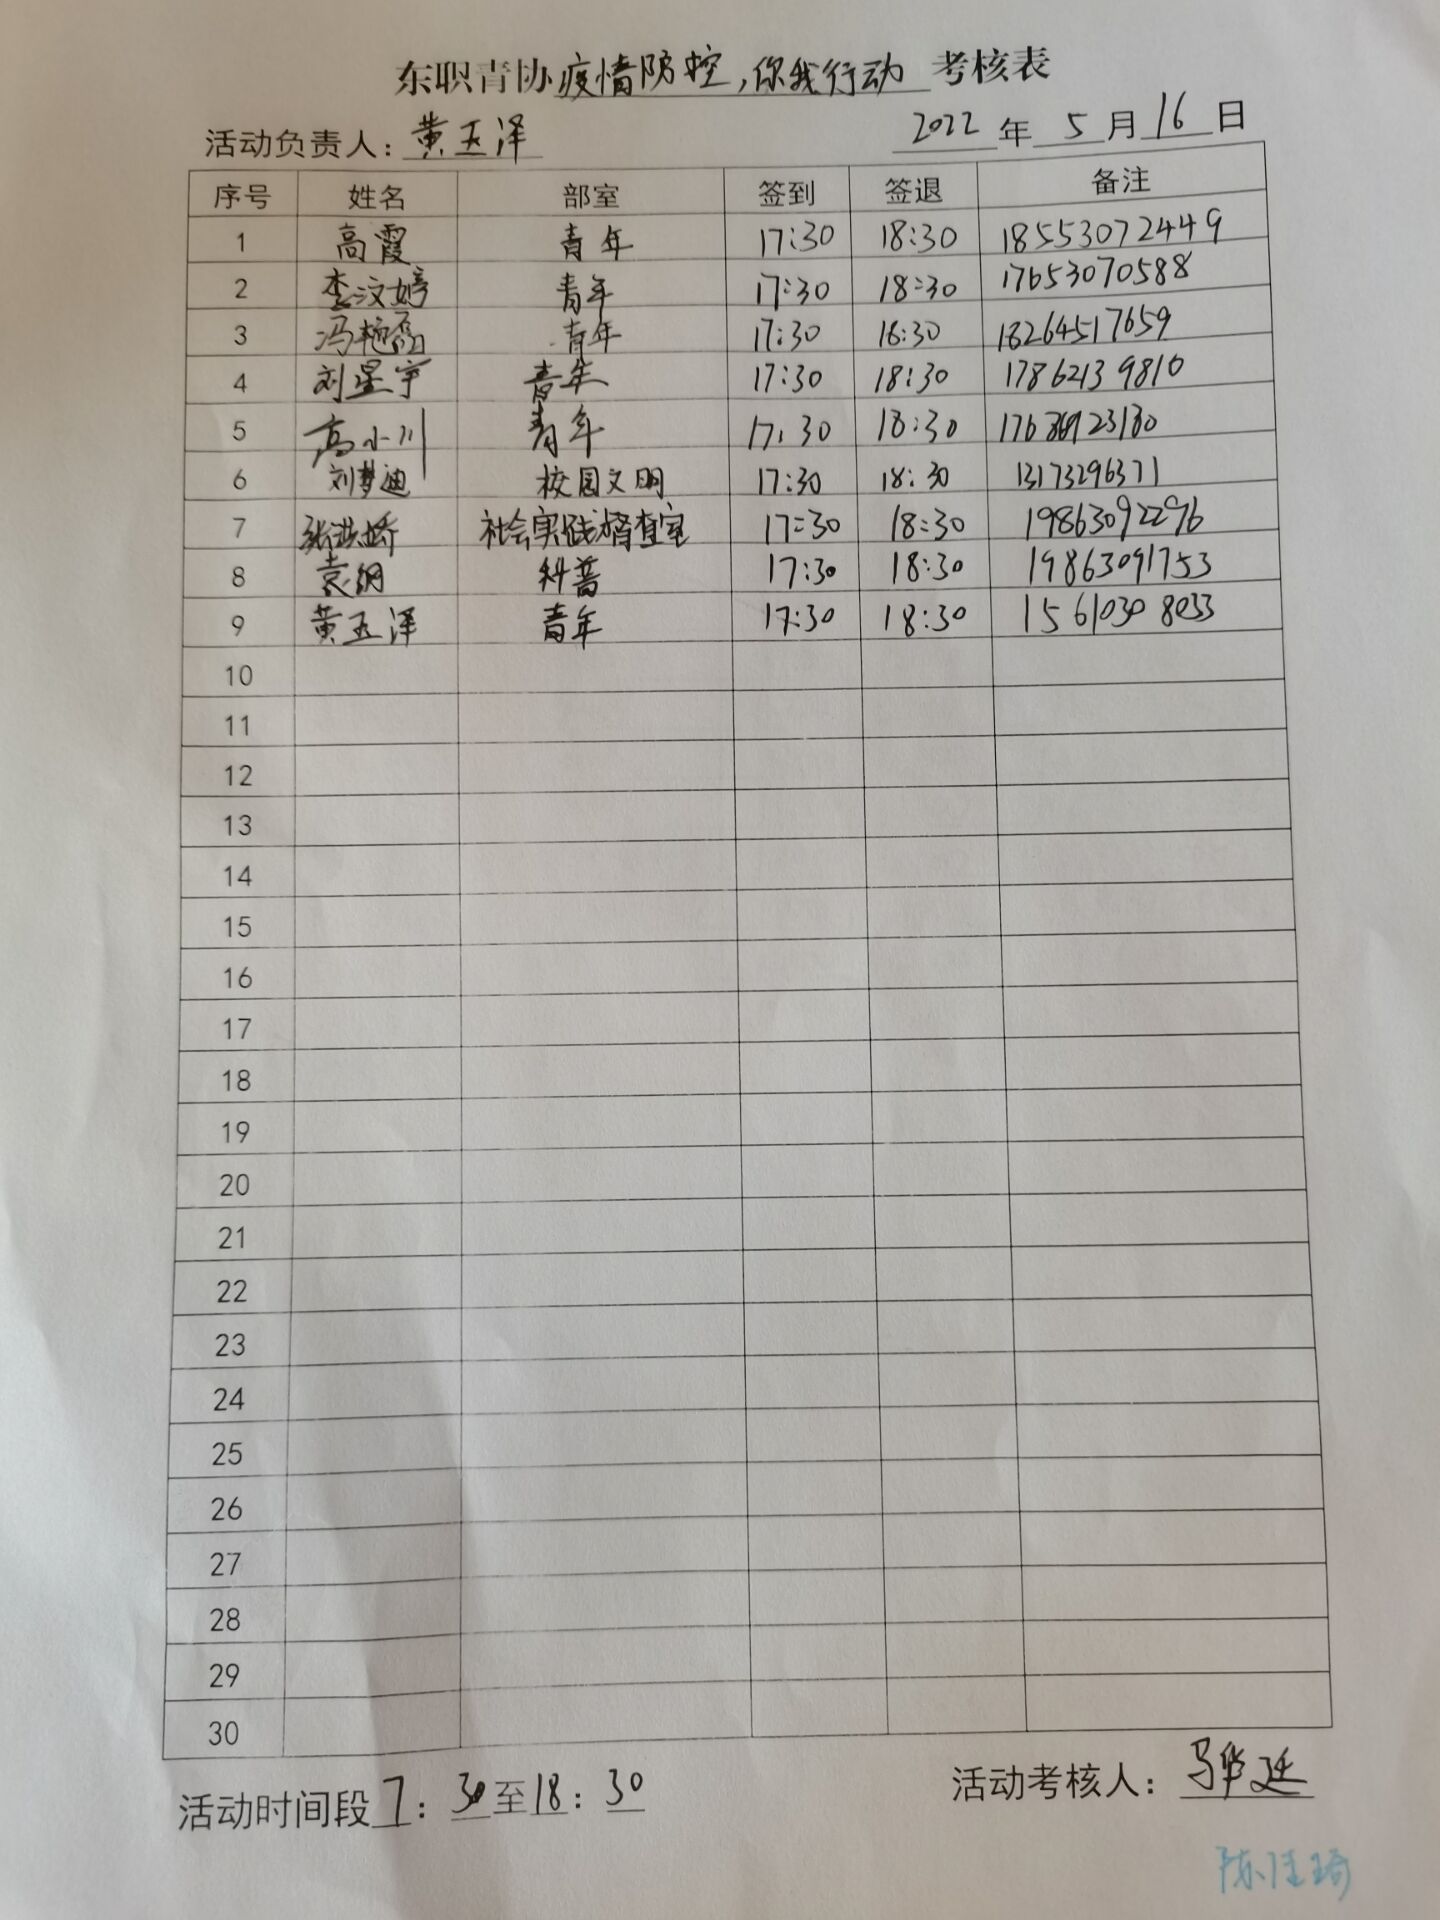 东职青协疫情防控,你我行动 考核表
活动负责人:黄玉泽 2022 年 5 月 16 日
序号 姓名 部室 签到 签退 备注
1 高霞 青年 17:30 18:30 18553072449
2 李汶婷 青年 17:30 18:30 17653070588
3 冯艳 青年 17:30 18:30 18264517659
4 刘星宇 青年 17:30 18:30 17862139810
5 高小川 青年 17:30 18:30
6 刘梦迪 校园文明 17:30 18:30 13173296371
7 张洪娇 社会实践督查室 17:30 18:30 19863092296
8 袁纲 科普 17:30 18:30 19863091753
9 黄玉泽 青年 17:30 18:30 15610308033
10
11
12
13
14
15
16
17
18
19
20
21
22
23
24
25
26
27
28
29
30
活动时间段 7:30至18:30 活动考核人:马华廷
陈佳琦